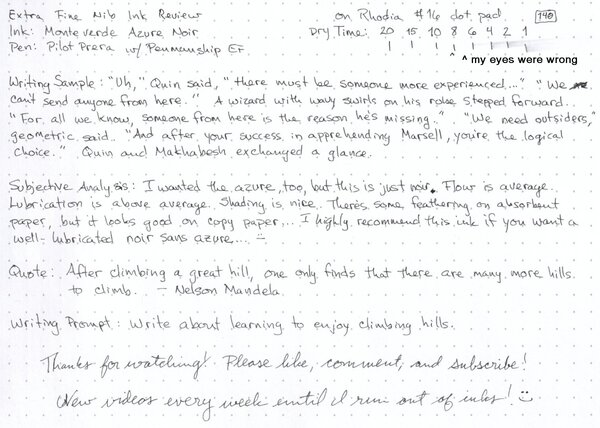 Extra Fine Nib Ink Review on Rhodia #16 dot pad 140
Ink: Monteverde Azure Noir Dry Time: 20 15 10 8 6 4 2 1
Pen: Pilot Prera w/ Penmanship EF
^ ^ my eyes were wrong
Writing Sample: "Uh," Quin said, "there must be someone more experienced..." "We
can't send anyone from here." A wizard with wavy swirls on his robe stepped forward.
"For all we know, someone from here is the reason he's missing.." "We need outsiders,"
geometric said. "And after your success in apprehending Marsell, you're the logical
choice." Quin and Makhabesh exchanged a glance.
Subjective Analysis: I wanted the azure, too, but this is just noir. Flow is average.
Lubrication is above average. Shading is nice. There's some feathering on absorbent
paper, but it looks good on copy paper... I highly recommend this ink if you want a
well-lubricated noir sans azure...
Quote: After climbing a great hill, one only finds that there are many more hills
to climb. - Nelson Mandela
Writing Prompt: Write about learning to enjoy climbing hills.
Thanks for watching! Please like, comment, and subscribe!
New videos every week until I run out of inks!